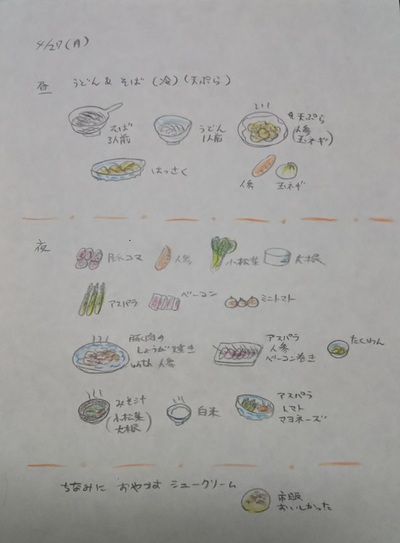 4/27(月)
昼 うどん & そば (冷) (天ぷら)
そば
3人前
うどん
1人前
天ぷら
(人参
玉ネギ)
はっさく
人参
玉ネギ
夜
豚コマ
人参
小松菜
大根
アスパラ
ベーコン
ミニトマト
豚肉の
しょうが焼き
with 人参
アスパラ
人参
ベーコン巻き
たくわん
みそ汁
(小松菜
大根)
白米
アスパラ
トマト
マヨネーズ
ちなみに おやつは シュークリーム
市販
おいしかった